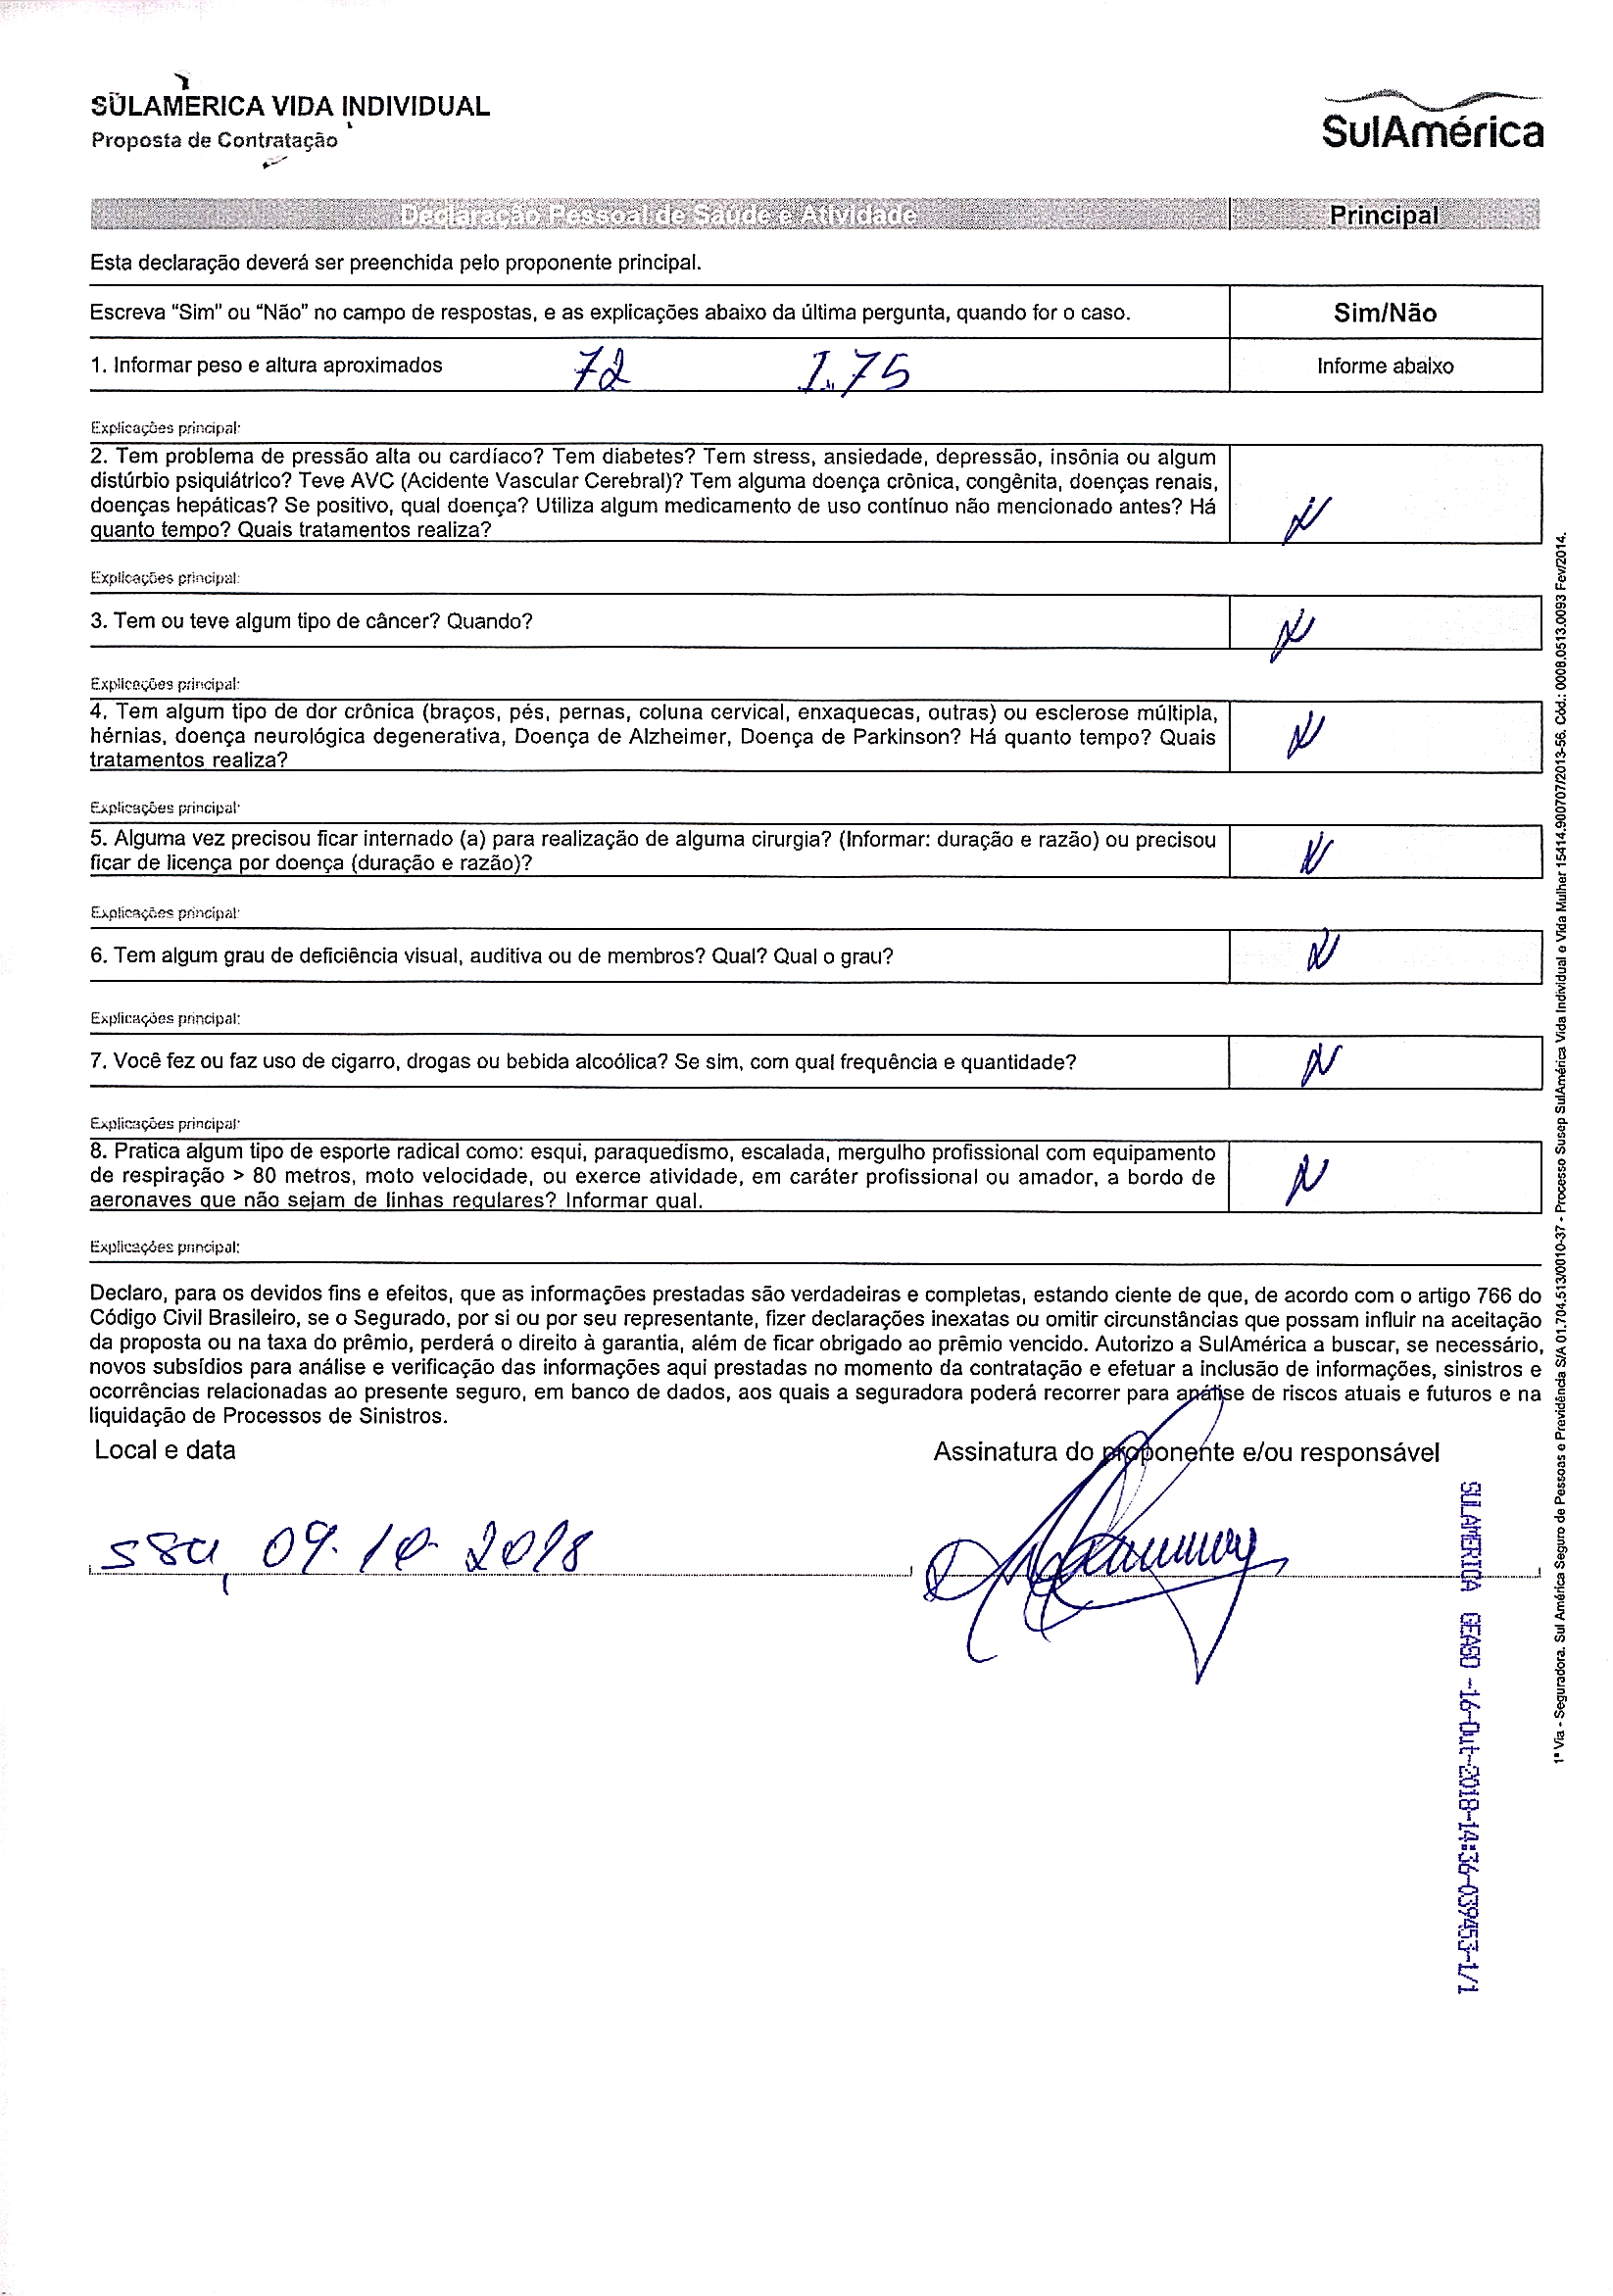 SULAMÉRICA VIDA INDIVIDUAL
Proposta de Contratação
SulAmérica
Declaração Pessoal de Saúde e Atividade
Principal
Esta declaração deverá ser preenchida pelo proponente principal.
Escreva “Sim” ou “Não” no campo de respostas, e as explicações abaixo da última pergunta, quando for o caso.
Sim/Não
1. Informar peso e altura aproximados 72 1.75
Informe abaixo
Explicações principal:
2. Tem problema de pressão alta ou cardíaco? Tem diabetes? Tem stress, ansiedade, depressão, insônia ou algum
distúrbio psiquiátrico? Teve AVC (Acidente Vascular Cerebral)? Tem alguma doença crônica, congênita, doenças renais,
doenças hepáticas? Se positivo, qual doença? Utiliza algum medicamento de uso contínuo não mencionado antes? Há
quanto tempo? Quais tratamentos realiza?
N
Explicações principal:
3. Tem ou teve algum tipo de câncer? Quando?
N
Explicações principal:
4. Tem algum tipo de dor crônica (braços, pés, pernas, coluna cervical, enxaquecas, outras) ou esclerose múltipla,
hérnias, doença neurológica degenerativa, Doença de Alzheimer, Doença de Parkinson? Há quanto tempo? Quais
tratamentos realiza?
N
Explicações principal:
5. Alguma vez precisou ficar internado (a) para realização de alguma cirurgia? (Informar: duração e razão) ou precisou
ficar de licença por doença (duração e razão)?
N
Explicações principal:
6. Tem algum grau de deficiência visual, auditiva ou de membros? Qual? Qual o grau?
N
Explicações principal:
7. Você fez ou faz uso de cigarro, drogas ou bebida alcoólica? Se sim, com qual frequência e quantidade?
N
Explicações principal:
8. Pratica algum tipo de esporte radical como: esqui, paraquedismo, escalada, mergulho profissional com equipamento
de respiração > 80 metros, moto velocidade, ou exerce atividade, em caráter profissional ou amador, a bordo de
aeronaves que não sejam de linhas regulares? Informar qual.
N
Explicações principal:
Declaro, para os devidos fins e efeitos, que as informações prestadas são verdadeiras e completas, estando ciente de que, de acordo com o artigo 766 do
Código Civil Brasileiro, se o Segurado, por si ou por seu representante, fizer declarações inexatas ou omitir circunstâncias que possam influir na aceitação
da proposta ou na taxa do prêmio, perderá o direito à garantia, além de ficar obrigado ao prêmio vencido. Autorizo a SulAmérica a buscar, se necessário,
novos subsídios para análise e verificação das informações aqui prestadas no momento da contratação e efetuar a inclusão de informações, sinistros e
ocorrências relacionadas ao presente seguro, em banco de dados, aos quais a seguradora poderá recorrer para análise de riscos atuais e futuros e na
liquidação de Processos de Sinistros.
Local e data
Assinatura do proponente e/ou responsável
SSA, 09.10.2018
SULAMERICA GEASO -16-Out-2018-14:36-039453-1/1
1ª Via - Seguradora. Sul América Seguro de Pessoas e Previdência S/A 01.704.513/0010-37 - Processo Susep SulAmérica Vida Individual e Vida Mulher 15414.900707/2013-56. Cód.: 0008.0513.0093 Fev/2014.